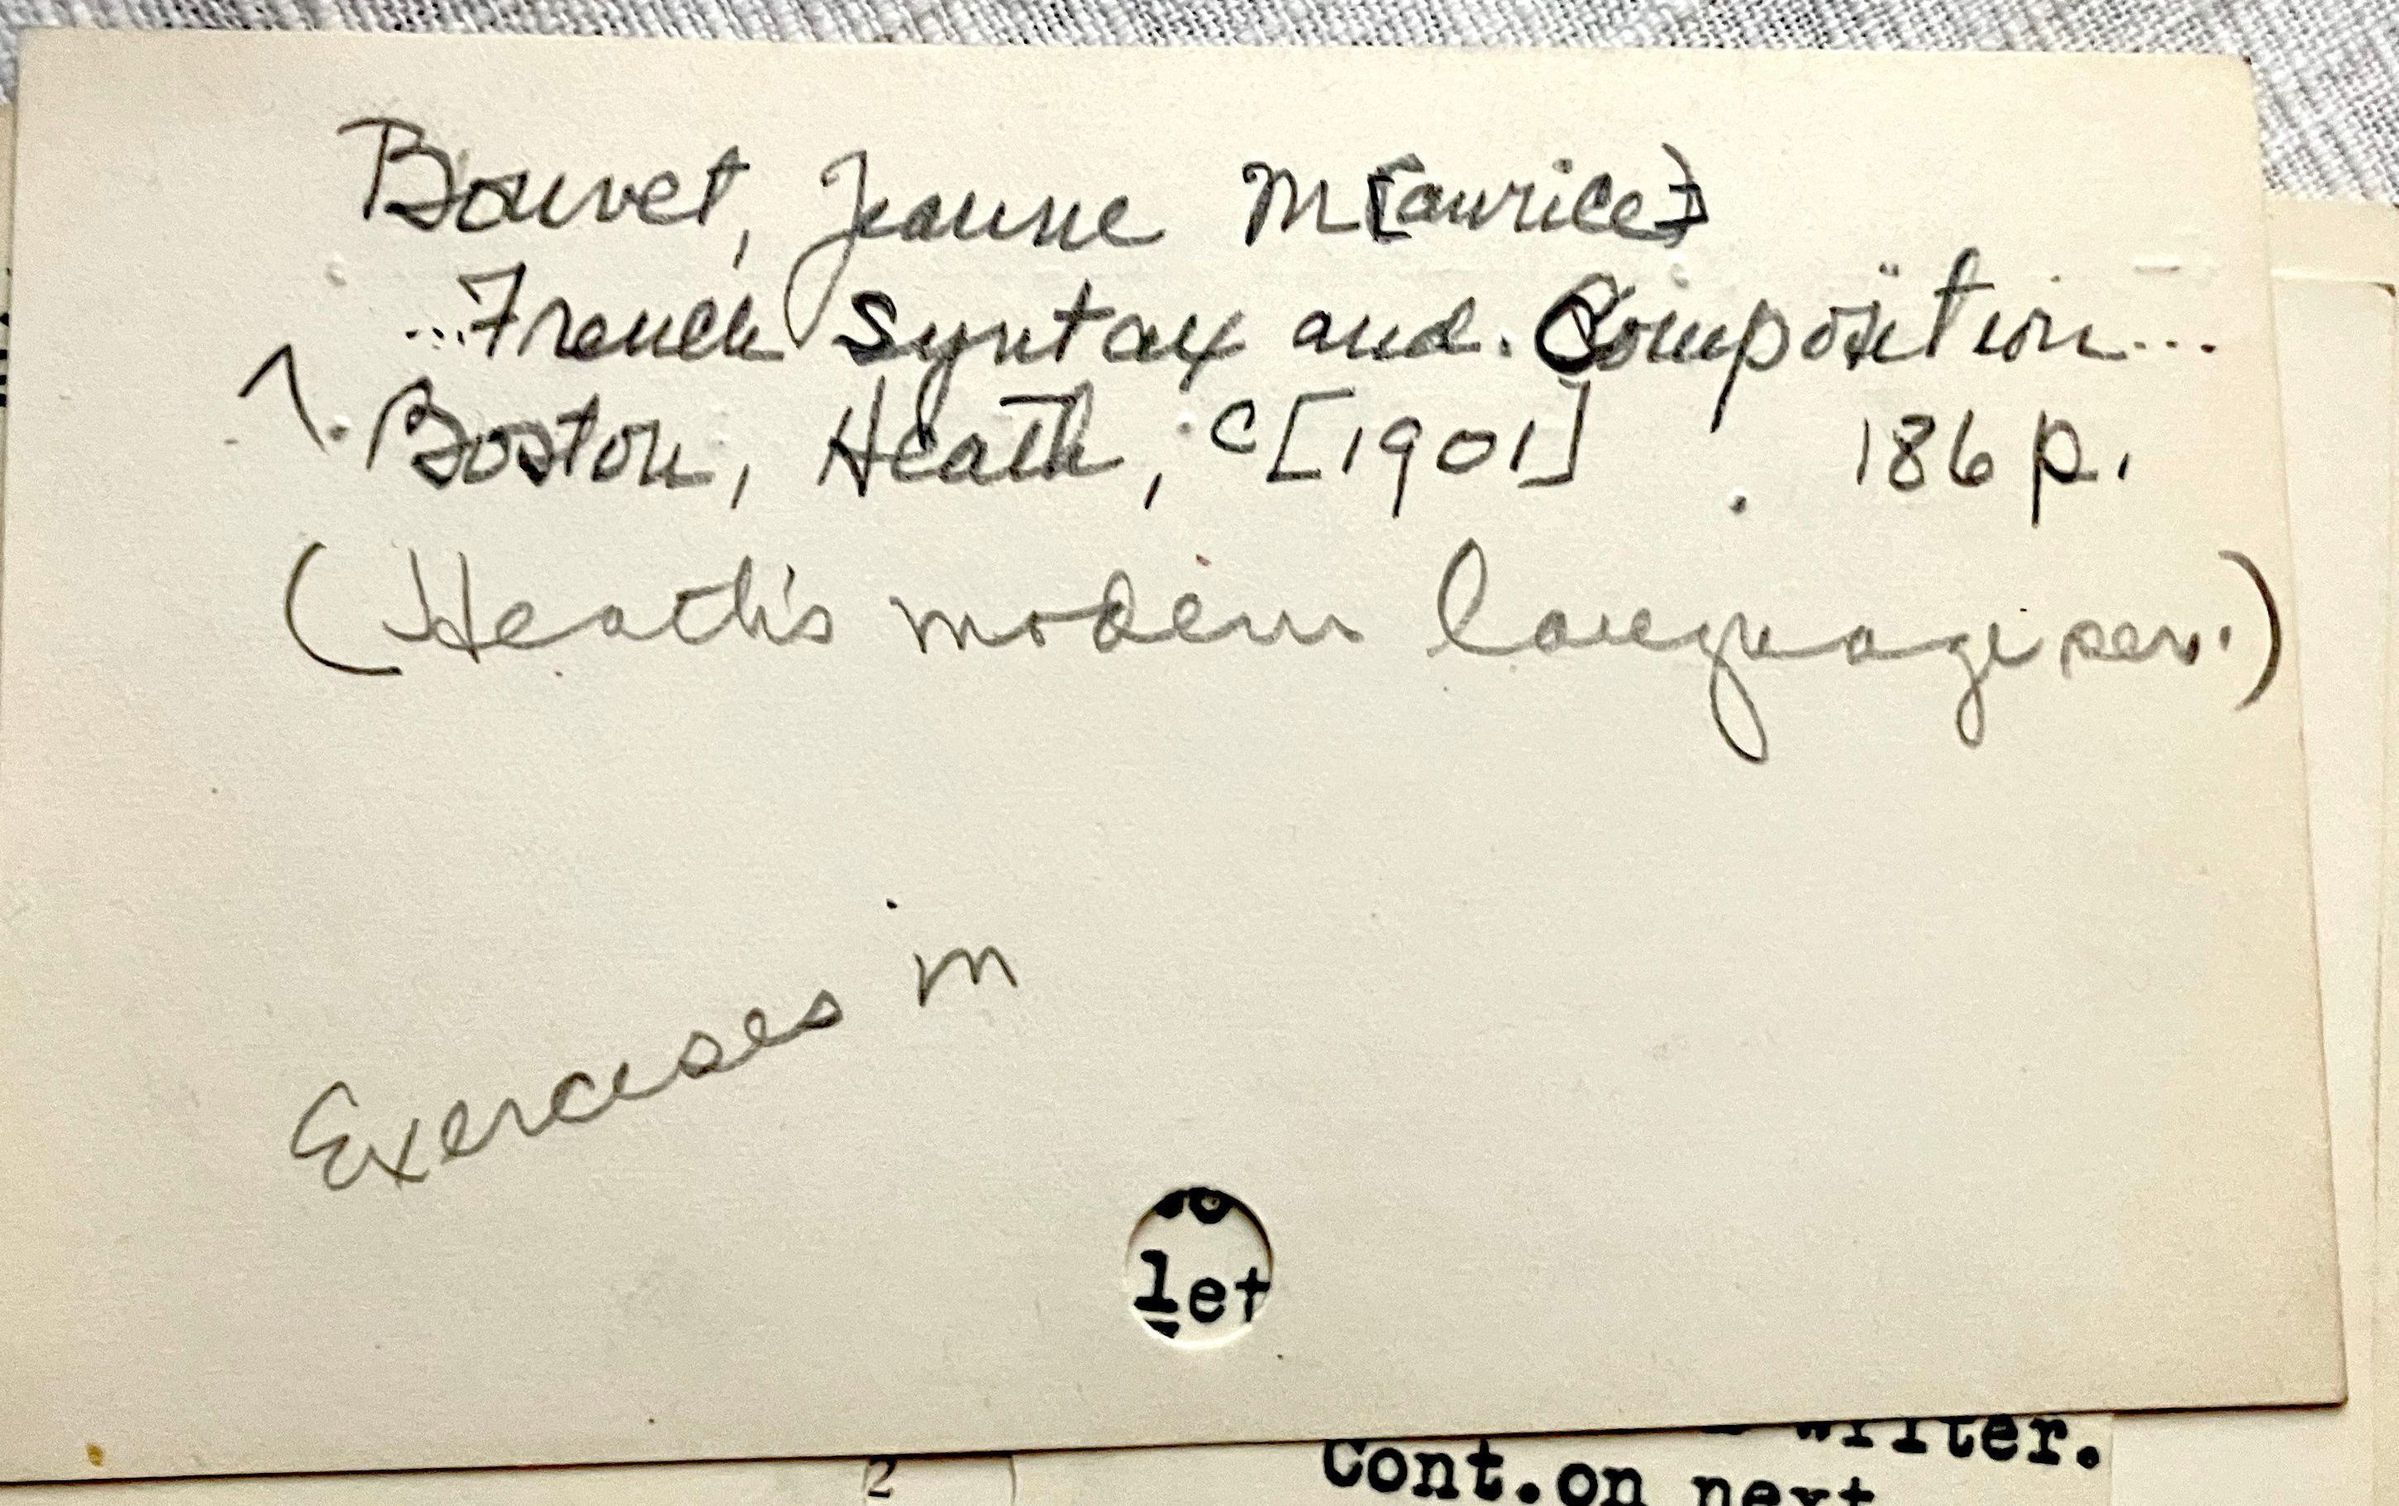 Bouvet, Jeanne M[aurice]
...French Syntax and Composition...
Boston, Heath, c[1901] 186 p.
(Heath's modern language ser.)
Exercises in
let
writer.
Cont.on next
2